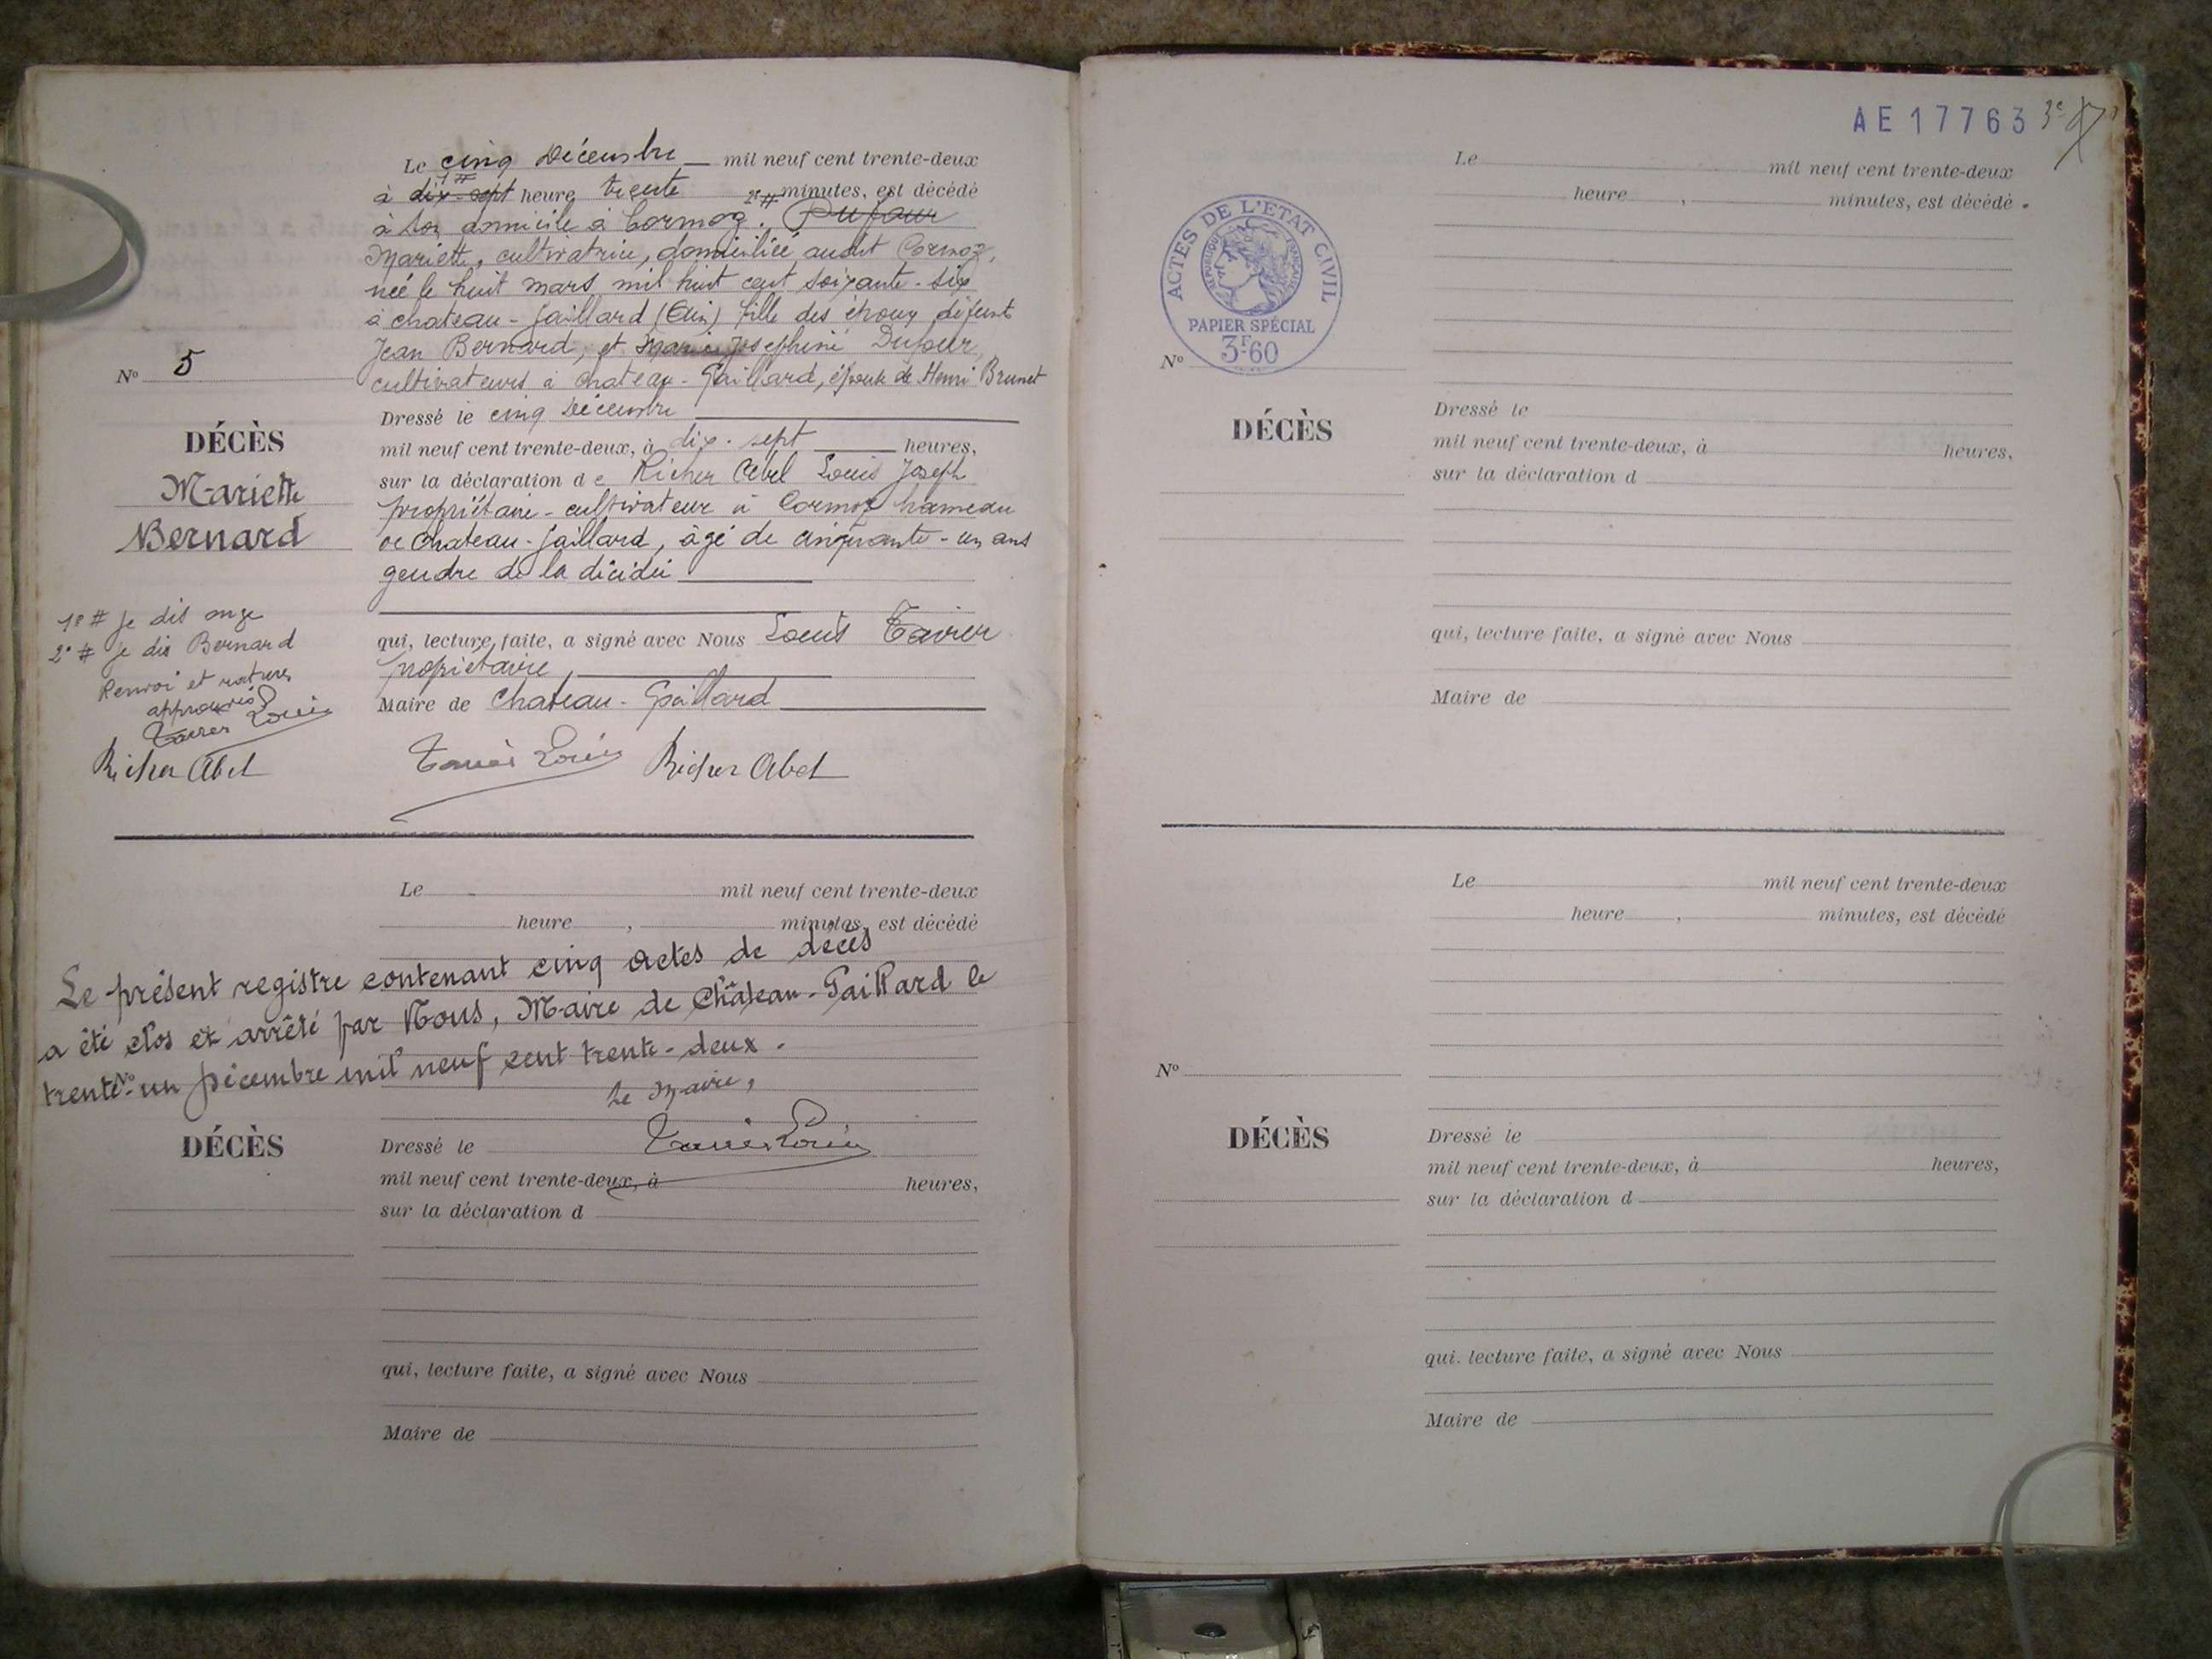 Le cinq Décembre mil neuf cent trente-deux
1# 
à dix-sept heure trente 2# minutes, est décédé
à son domicile à Cormoz. Dufour
Mariette, cultivatrice, domiciliée audit Cormoz,
née le huit mars mil huit cent soixante-six
à chateau-Gaillard (Ain) fille des époux défunt
Jean Bernard, et Marie Josephine Dufour
cultivateurs à chateau-Gaillard, épouse de Henri Brunet
Nº 5
DÉCÈS
Mariette
Bernard
Dressé le cinq Décembre
mil neuf cent trente-deux, à dix-sept heures,
sur la déclaration de Richer Abel Louis Joseph
propriétaire-cultivateur à Cormoz hameau
de Chateau-Gaillard, âgé de cinquante-un ans
gendre de la décédée
1º # je dis onze
2º # je dis Bernard
Renvoi et ratures
approuvés
Tavier Louis
Richer Abel
qui, lecture faite, a signé avec Nous Louis Tavier
propriétaire
Maire de Chateau-Gaillard
Tavier Louis Richer Abel
Le mil neuf cent trente-deux
heure , minutes, est décédé
Le présent registre contenant cinq actes de décès
a été clos et arrêté par Nous, Maire de Château-Gaillard le
trente-un Décembre mil neuf cent trente-deux.
Le Maire,
Nº
DÉCÈS
Dressé le Tavier Louis
mil neuf cent trente-deux, à heures,
sur la déclaration d
qui, lecture faite, a signé avec Nous
Maire de
AE17763 3e
Le mil neuf cent trente-deux
heure , minutes, est décédé
ACTES DE L'ETAT CIVIL
REPUBLIQUE FRANÇAISE
PAPIER SPÉCIAL
3F60
Nº
DÉCÈS
Dressé le
mil neuf cent trente-deux, à heures,
sur la déclaration d
qui, lecture faite, a signé avec Nous
Maire de
Le mil neuf cent trente-deux
heure , minutes, est décédé
Nº
DÉCÈS
Dressé le
mil neuf cent trente-deux, à heures,
sur la déclaration d
qui. lecture faite, a signé avec Nous
Maire de